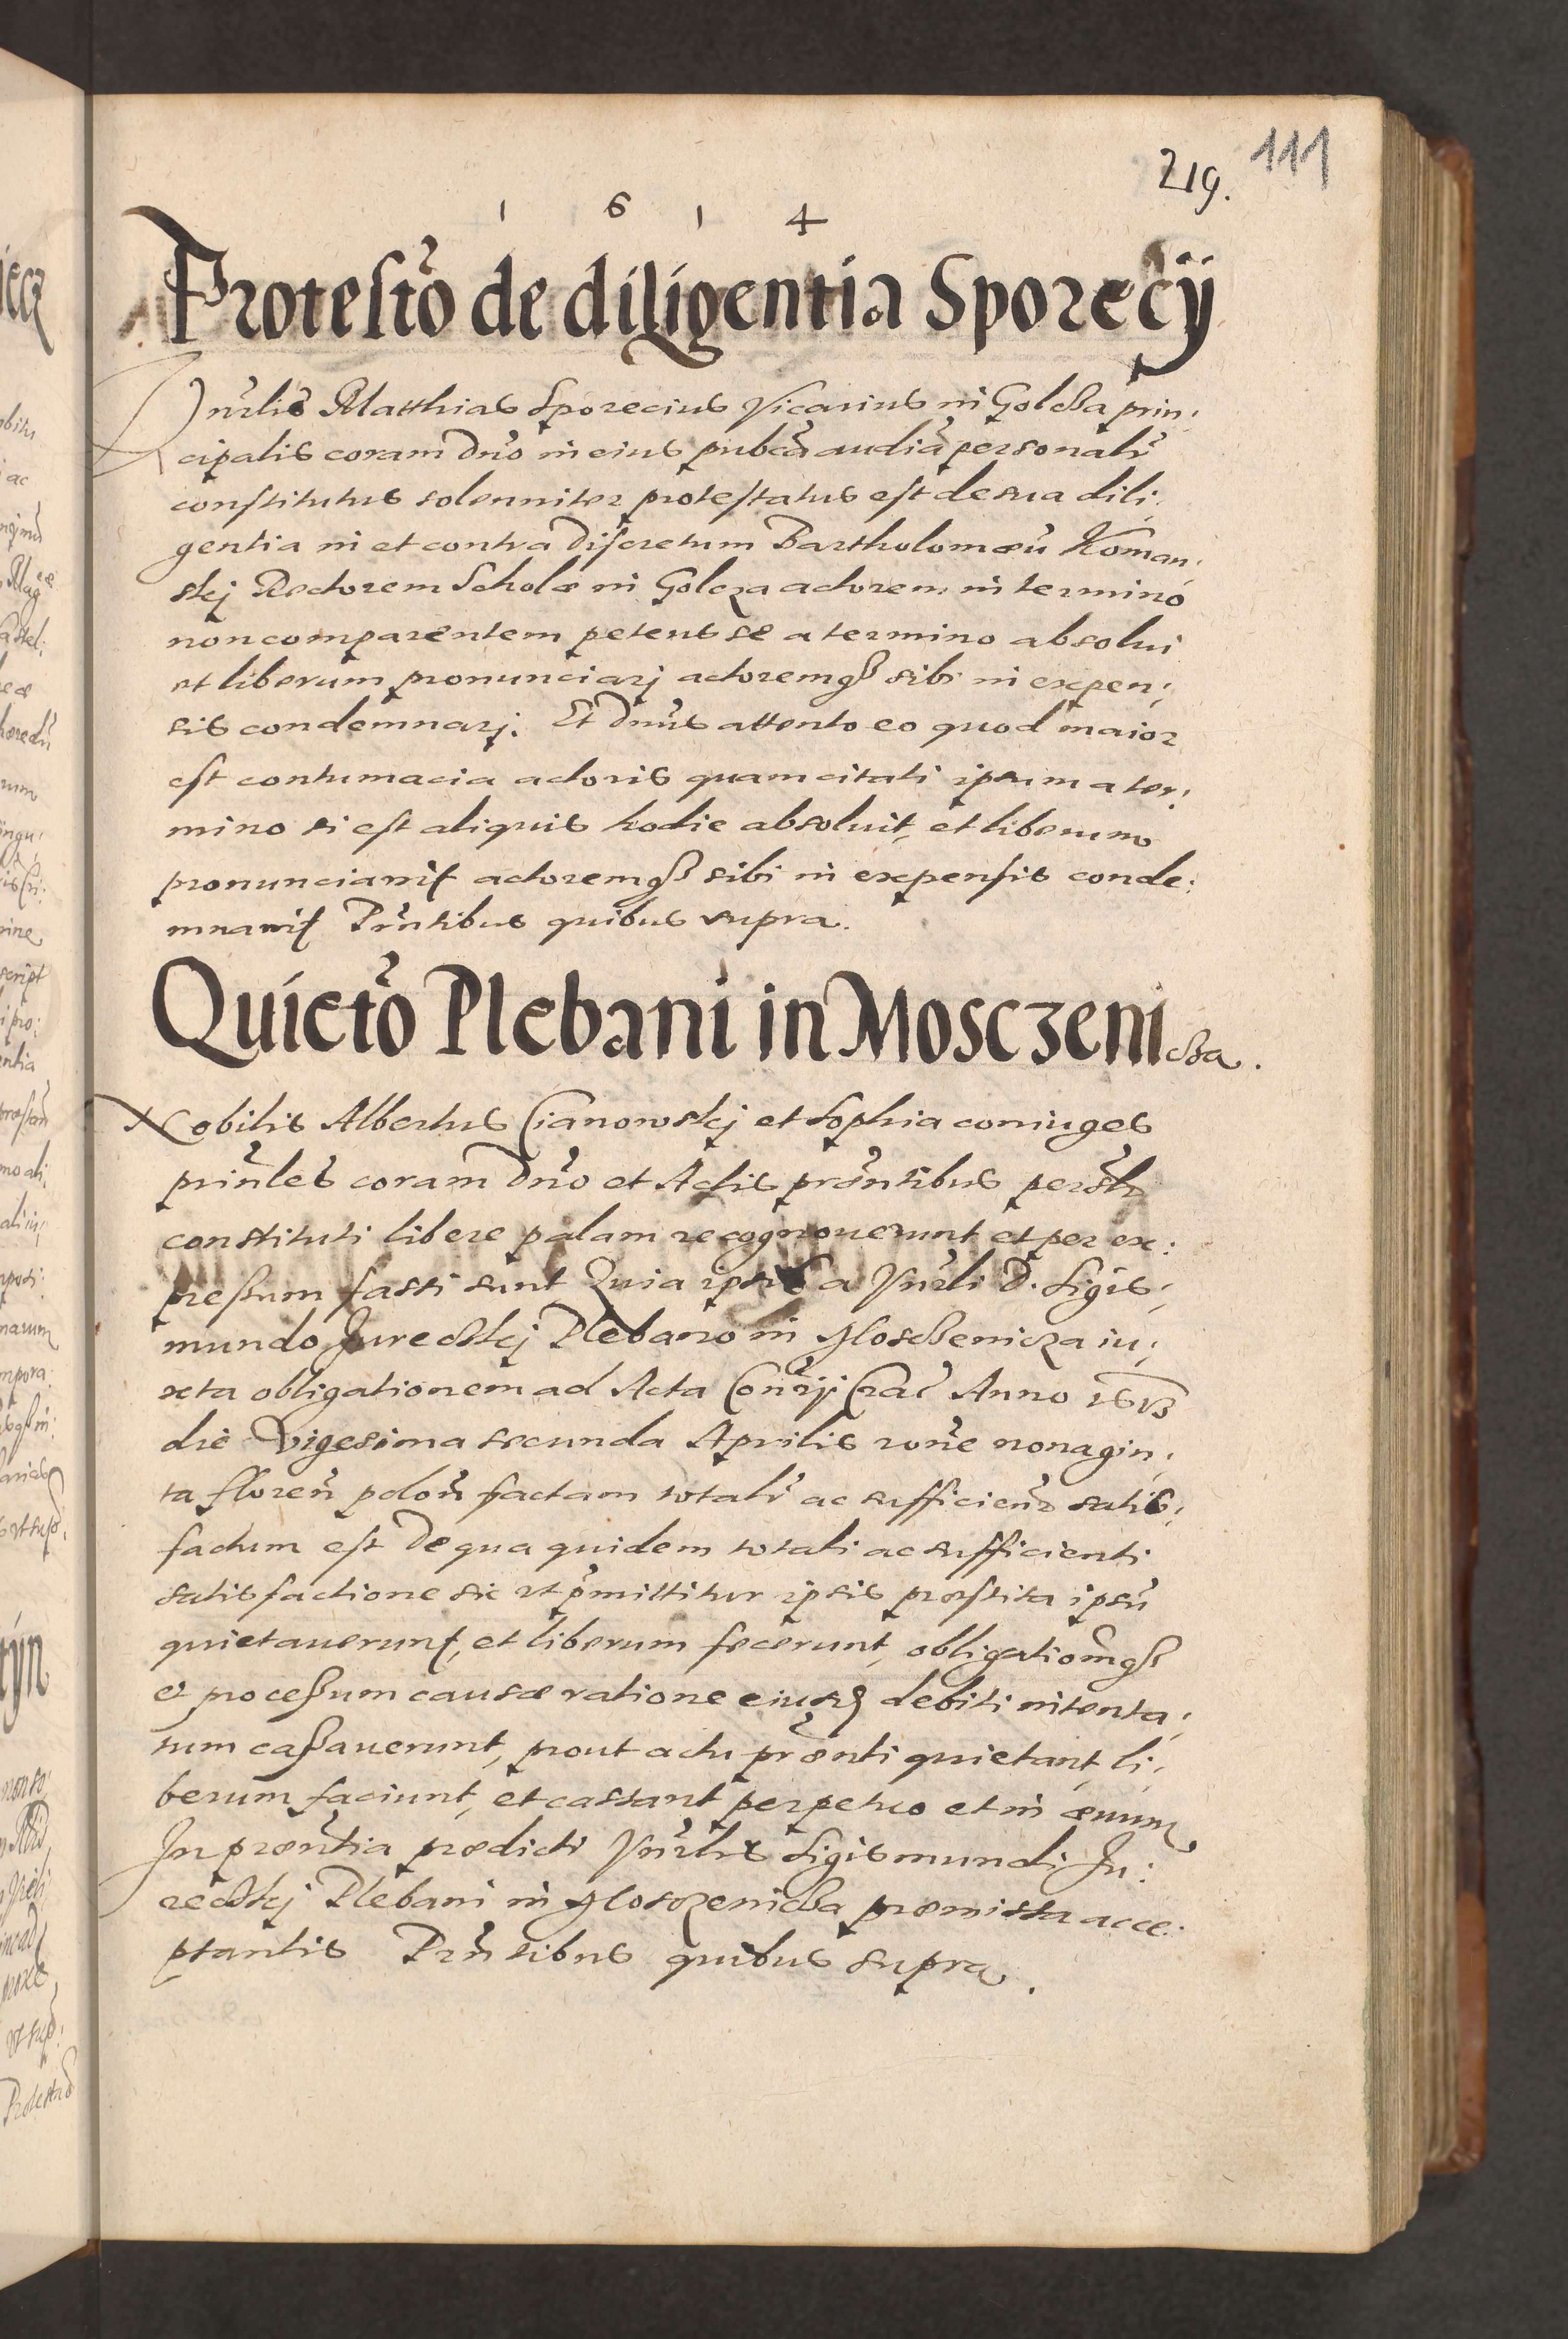 219. 111
1 6 1 4
Protestõ de diligentia Sporecÿ
Vnr̃lis Matthias Sporecius Vicarius in Golcza prin:
cipalis coram Dnõ in eius pubcã audiã personalr̃
constitutus solenniter protestatus est de sua dili:
gentia in et contra Discretum Bartholomæũ Koman:
skj Rectorem Scholæ in Golcza actorem in termino
non comparentem petens se a termino absolui
et liberum pronunciarj actoremqꝫ sibi in expen:
sis condemnarj. Et Dnũs attento eo quod maior
est contumacia actoris quam citati ipsum a ter:
mino si est aliquis hodie absoluit, et liberum
pronunciauit actoremqꝫ sibi in expensis conde:
mnauit Prñtibus quibus supra.
Quietõ Plebani in Mosczenicza.
Nobilis Albertus Cianowskj et Sophia coniuges
prinl̃es coram Dnõ et Actis præñtibus persl̃r
constituti libere palam recognouerunt et per ex:
preßum fassi sunt Quia ipsis a Vnr̃li D. Sigis:
mundo Jureczkj Plebano in Mosczenicza iu:
xta obligationem ad Acta Conr̃ij Crac̃ Anno 1613
die Vigesima secunda Aprilis rone nonagin:
ta floreñ poloñ factam totalr̃ ac sufficienr̃ satis:
factum est De qua quidem totali ac sufficienti
satisfactione sic vt p̃mittitur ipsis præstita ipsũ
quietauerunt, et liberum fecerunt, obligationẽqꝫ
et proceßum causæ ratione eiusd debiti intenta:
tum caßauerunt, prout actu præñti quietant, li:
berum faciunt, et cassant perpetuo et in æuum
In præñtia prædicti Vnr̃lis Sigismundi Ju:
reczkj Plebani in Mosczenicza præmissa acce:
ptantis Prñtibus quibus supra.